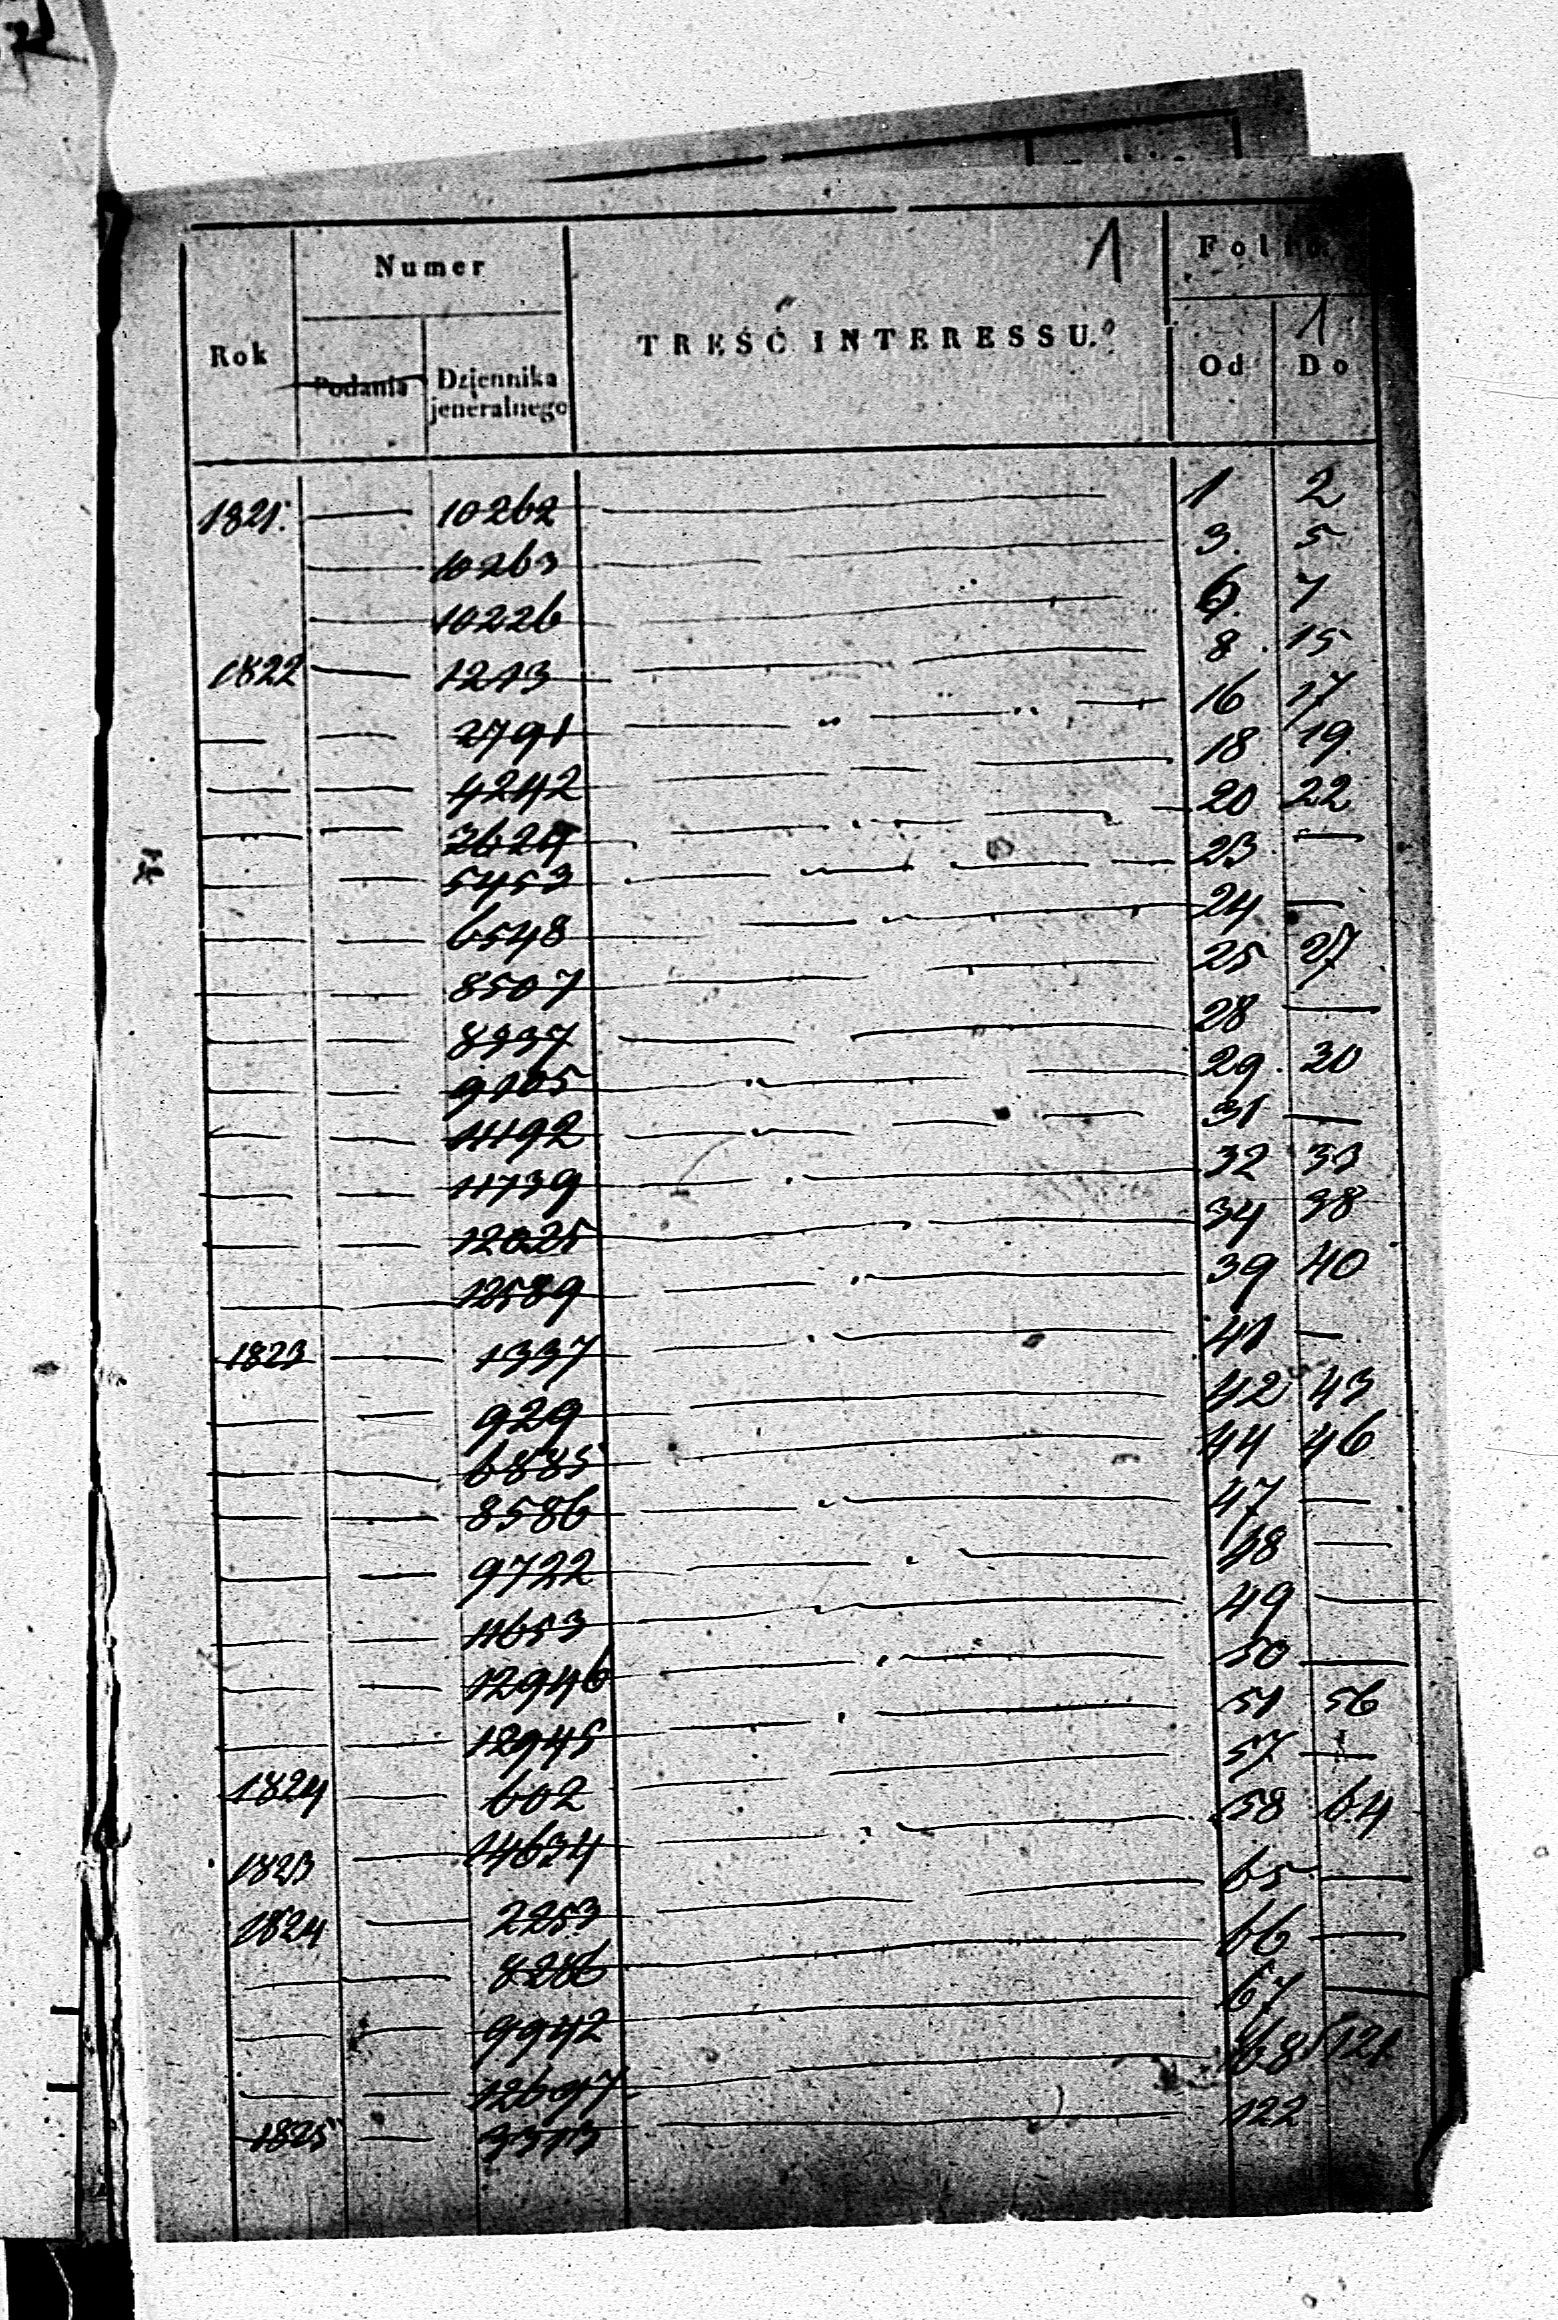 1
Numer
Folio.
1
TREŚĆ INTERESSU.
Rok
Podania
Dziennika
jeneralnego
Od
Do
1821. — 10262 — 1 2
— 10263 — 3. 5
— 10226 — 6. 7
1822 — 1213 — 8. 15
— — 2791 — 16 17
— — 4242 — 18 19.
— — 3624 — 20 22
— — 5453 — 23 —
— — 6548 — 24 —
— — 8507 — 25 27
— — 8937 — 28 —
— — 9105 — 29. 30
— — 11192 — 31 —
— — 11739 — 32 33
— — 12025 — 34 38
— — 12589 — 39 40
1823 — 1337 — 41 —
— — 929 — 42 43
— — 6885 — 44 46
— — 8586 — 47 —
— — 9722 — 48 —
— — 11653 — 49 —
— — 12946 — 50 —
— — 12945 — 51 56
1824 — 602 — 57 —
1823 — 14634 — 58 64
1824 — 2253 — 65 —
— — 8286 — 66 —
— — 9942 — 67 —
— — 12697 — 68 121
1825 — 3313 — 122